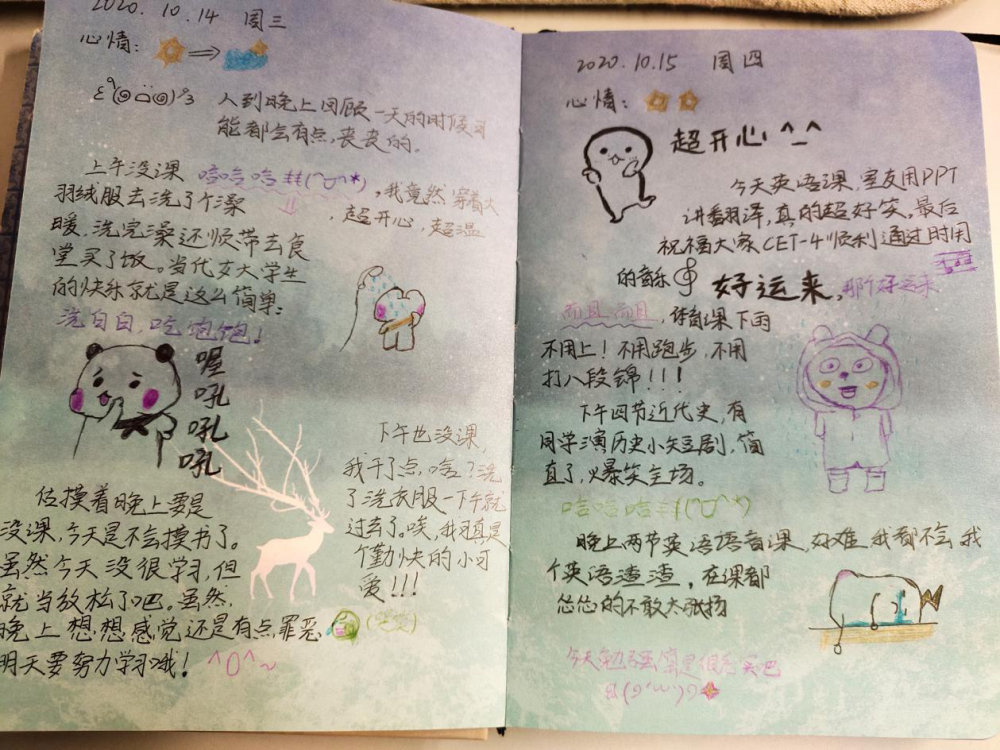 2020.10.14 周三
心情:
人到晚上回顾一天的时候可
能都会有点,丧丧的。
上午没课 哈哈哈 ,我竟然穿着大
羽绒服去洗了个澡 , 超开心,超温
暖,洗完澡还顺带去食
堂买了饭。当代女大学生
的快乐就是这么简单:
洗白白,吃饱饱!
喔
吼
吼
吼
下午也没课,
我干了点,啥?洗
了洗衣服一下午就
过去了。唉,我可真是
个勤快的小可
爱!!!
估摸着晚上要是
没课,今天是不会摸书了。
虽然今天没很学习,但
就当放松了吧。虽然,
晚上想想感觉还是有点罪恶
明天要努力学习哦! ^O^~
2020.10.15 周四
心情:
超开心 ^_^
今天英语课,室友用PPT
讲翻译,真的超好笑。最后
祝福大家CET-4顺利通过时用
的音乐 好运来,那个好运来
而且而且,体育课下雨
不用上!不用跑步,不用
打八段锦!!!
下午四节近代史,有
同学演历史小短剧,简
直了,爆笑全场。
哈哈哈
晚上两节英语语音课,好难 我都不会 我
个英语渣渣,在课都
怂怂的不敢太张扬
今天勉强算是很充实吧